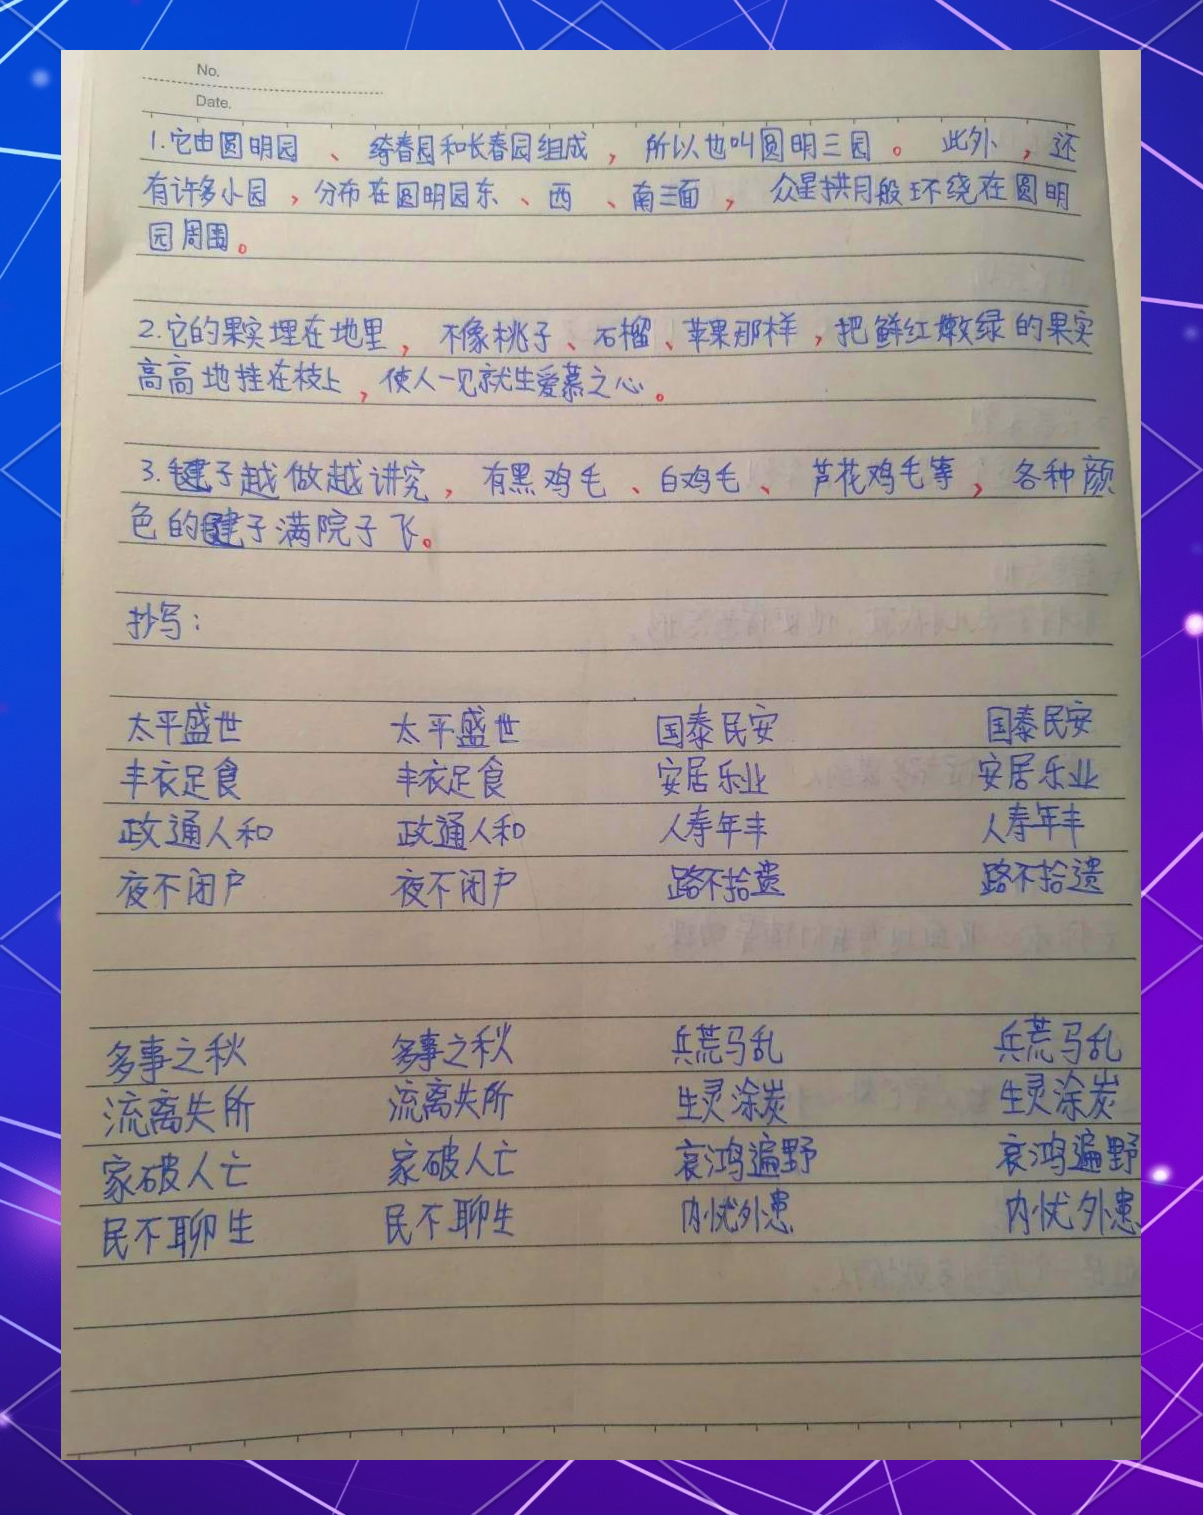 No.
Date.
1.它由圆明园、绮春园和长春园组成，所以也叫圆明三园。此外，还
有许多小园，分布在圆明园东、西、南三面，众星拱月般环绕在圆明
园周围。
2.它的果实埋在地里，不像桃子、石榴、苹果那样，把鲜红嫩绿的果实
高高地挂在枝上，使人一见就生爱慕之心。
3.毽子越做越讲究，有黑鸡毛、白鸡毛、芦花鸡毛等，各种颜
色的毽子满院子飞。
抄写：
太平盛世 太平盛世 国泰民安 国泰民安
丰衣足食 丰衣足食 安居乐业 安居乐业
政通人和 政通人和 人寿年丰 人寿年丰
夜不闭户 夜不闭户 路不拾遗 路不拾遗
多事之秋 多事之秋 兵荒马乱 兵荒马乱
流离失所 流离失所 生灵涂炭 生灵涂炭
家破人亡 家破人亡 哀鸿遍野 哀鸿遍野
民不聊生 民不聊生 内忧外患 内忧外患